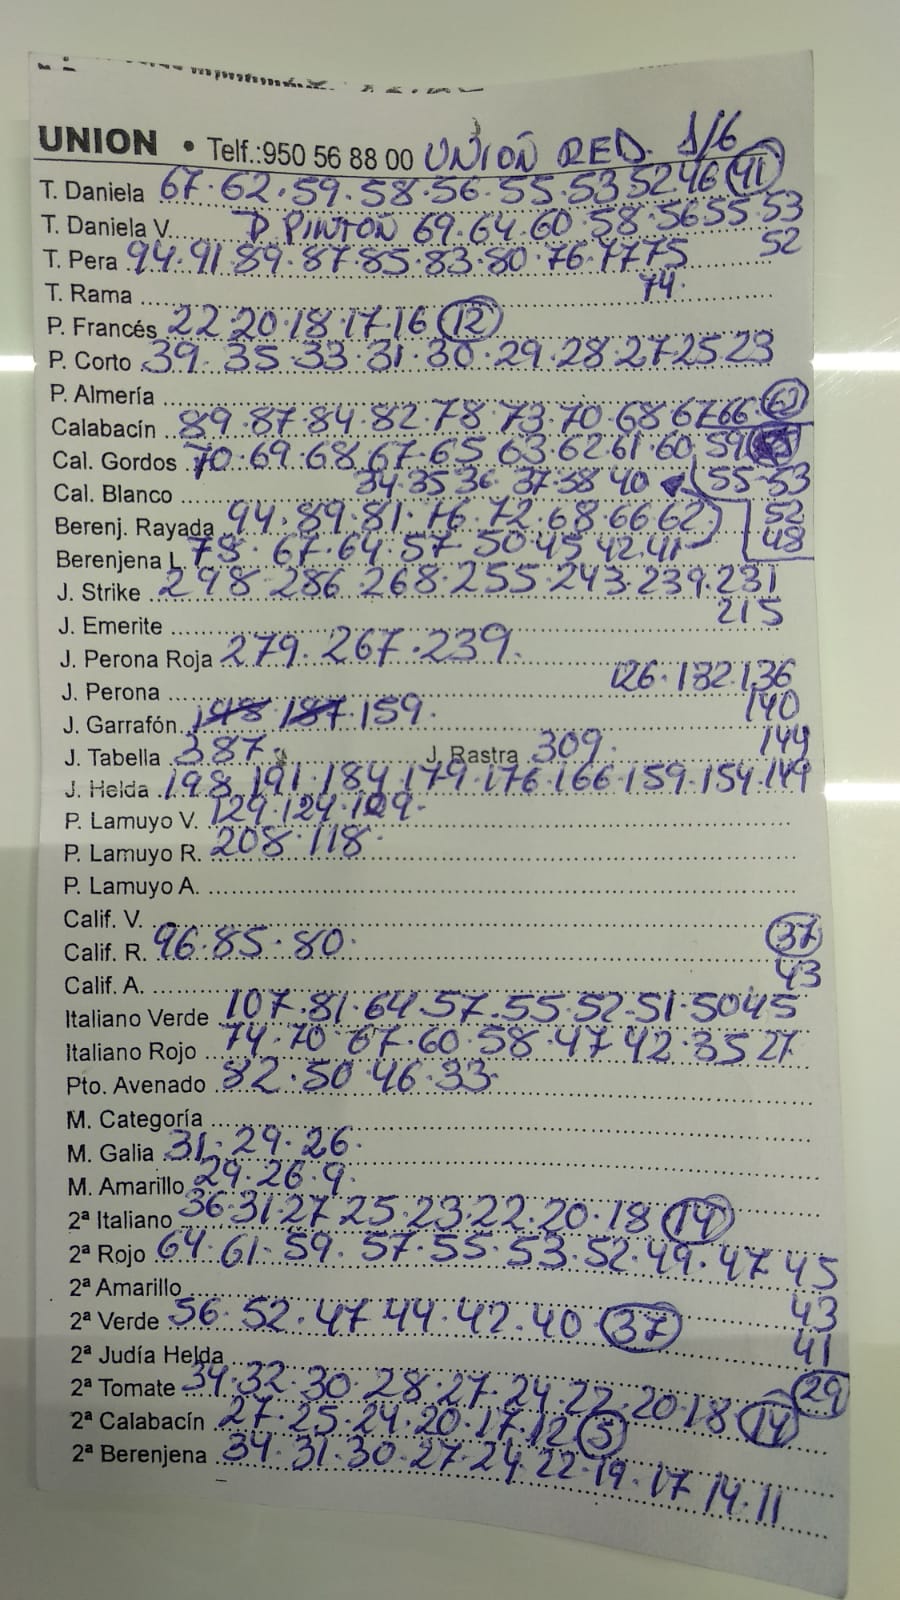 UNION • Telf.:950 56 88 00 UNION RED. 1/6
T. Daniela 67.62.59.58.56.55.53 52 46 41
T. Daniela V. D PINTON 69.64.60.58.56 55 53
52
T. Pera 94.91 89.87.85.83.80.76.77 75
74.
T. Rama
P. Francés 22 20.18.17.16 12
P. Corto 39.35.33.31.30.29.28.27 25 23
P. Almería
Calabacín 89.87.84.82.78.73.70.68 67 66
Cal. Gordos 70.69.68 67.65 63.62 61.60 59
55-53
Cal. Blanco 34.35 36 37.38 40
52
48
Berenj. Rayada 94.89.81.76.72.68.66 62
Berenjena L. 78.67.64.57 50 45 42 41
J. Strike 298 286.268.255.243.239.231
215
J. Emerite
J. Perona Roja 279.267.239.
J. Perona 126.132.136
140
144
J. Garrafón 148 187 159.
J. Tabella 387. J. Rastra 309.
J. Helda 198 191.184.179.176.166.159.154.149
P. Lamuyo V. 129.124.109.
P. Lamuyo R. 208.118.
P. Lamuyo A.
Calif. V.
Calif. R. 96.85.80.
37
43
Calif. A.
Italiano Verde 107.81.64.57.55.52.51.50 45
Italiano Rojo 74.70 67.60.58.47 42.35 27
Pto. Avenado 82.50 46.33
M. Categoría
M. Galia 31.29.26.
M. Amarillo 29.26.9.
2ª Italiano 36.31.27 25.23.22.20.18 14
2ª Rojo 64.61.59.57.55.53.52.49.47 45
43
41
29
2ª Amarillo
2ª Verde 56.52.47 44.42.40 37
2ª Judía Helda
2ª Tomate 34.32.30.28.27.24.22.20.18 14
2ª Calabacín 27.25.24.20.17.12 5
2ª Berenjena 34.31.30.27.24.22.19.17 14.11